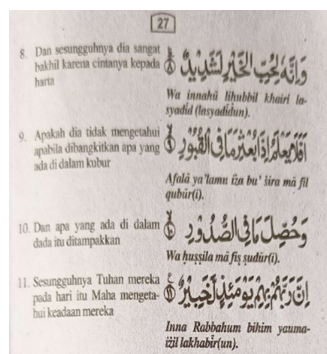 27
8. Dan sesungguhnya dia sangat
bakhil karena cintanya kepada
harta
وَاِنَّهُ لِحُبِّ الْخَيْرِ لَشَدِيْدٌ
Wa innahū lihubbil khairi la-
syadīd (lasyadīdun).
9. Apakah dia tidak mengetahui
apabila dibangkitkan apa yang
ada di dalam kubur
اَفَلَا يَعْلَمُ اِذَا بُعْثِرَ مَا فِى الْقُبُوْرِ
Afalā ya'lamu iza bu' sira mā fil
qubūr(i).
10. Dan apa yang ada di dalam
dada itu ditampakkan
وَحُصِّلَ مَا فِى الصُّدُوْرِ
Wa huṣṣila mā fiṣ ṣudūr(i).
11. Sesungguhnya Tuhan mereka
pada hari itu Maha mengeta-
hui keadaan mereka
اِنَّ رَبَّهُمْ بِهِمْ يَوْمَئِذٍ لَخَبِيْرٌ
Inna Rabbahum bihim yauma-
iżil lakhabīr(un).